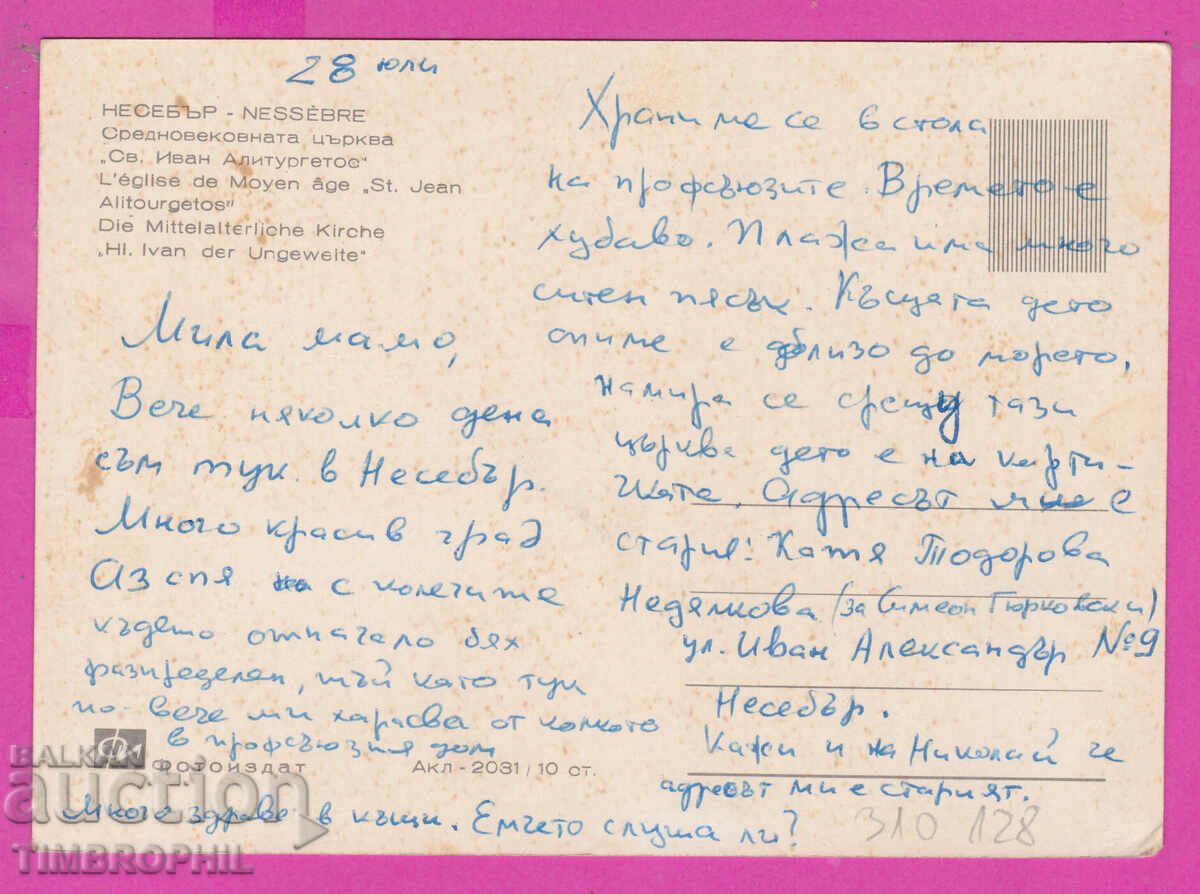 28 юли
НЕСЕБЪР - NESSÈBRE
Средновековната църква
„Св. Иван Алитургетос"
L'église de Moyen âge „St. Jean
Alitourgetos"
Die Mittelalterliche Kirche
„Hl. Ivan der Ungeweite"
Мила мамо,
Вече няколко дена
съм тук в Несебър.
Много красив град
Аз спя с колегите
където отначало бях
разпределен, тъй като тук
по-вече ми харесва от колкото
в профсъюзния дом
Много здраве в къщи. Емчето слуша ли?
Храниме се в стола
на профсъюзите. Времето е
хубаво. Плажа има много
ситен пясък. Къщата дето
спиме е близо до морето,
намира се срещу тази
църква дето е на карти-
чката. Адресът ми е
стария: Катя Тодорова
Недялкова (за Симеон Гюрковски)
ул. Иван Александър №9
Несебър.
Кажи и на Николай че
адресът ми е старият.
Фотоиздат
Акл-2031/10 ст.
310 128
BALKAN
auction
TIMBROPHIL